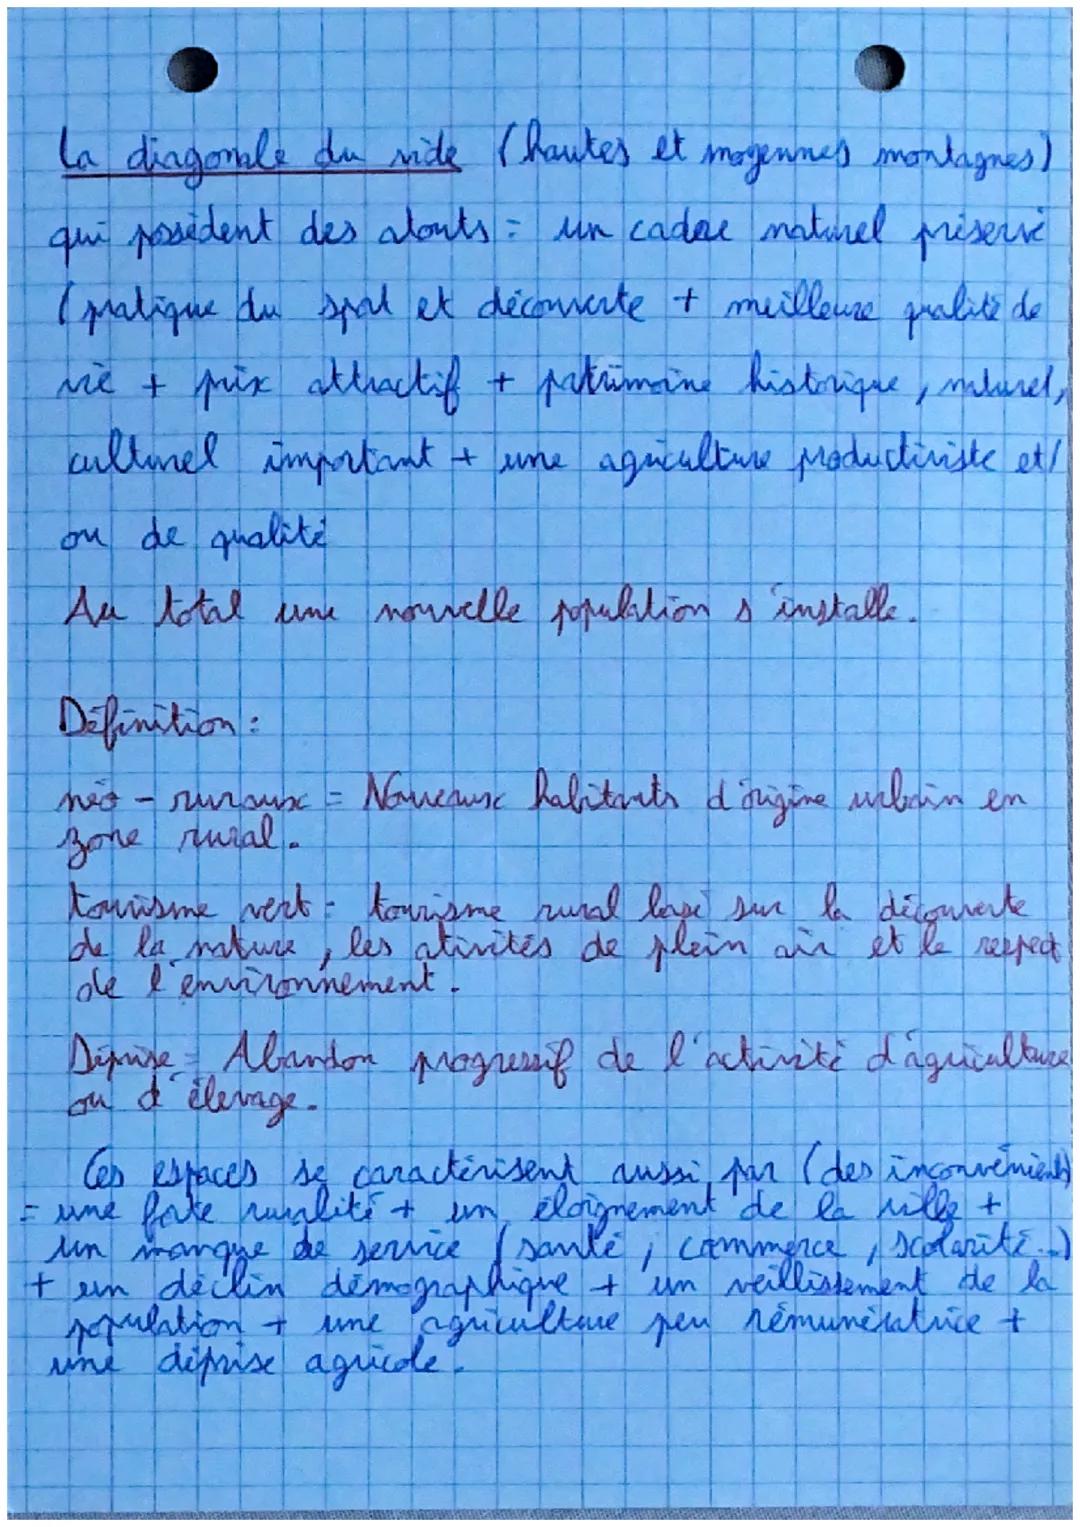 La diagonale du vide (hautes et moyennes montagnes)
qui possèdent des atouts = un cadre naturel préservé
(pratique du sport et découverte + meilleure qualité de
vie + prix attractif + patrimoine historique, naturel,
culturel important + une agriculture productiviste et/
ou de qualité
Au total une nouvelle population s'installe.
Définition :
néo-ruraux = Nouveaux habitants d'origine urbain en
zone rural.
tourisme vert = tourisme rural basé sur la découverte
de la nature, les ativités de plein air et le respect
de l'environnement.
Déprise = Abandon progressif de l'activité d'agriculture
ou d'élevage.
Ces espaces se caractérisent aussi par (des inconvénients)
= une forte ruralité + un éloignement de la ville +
un manque de service (santé, commerce, scolarité...)
+ un déclin démographique + un veillissement de la
population + une agriculture peu rémunératrice +
une déprise agricole.